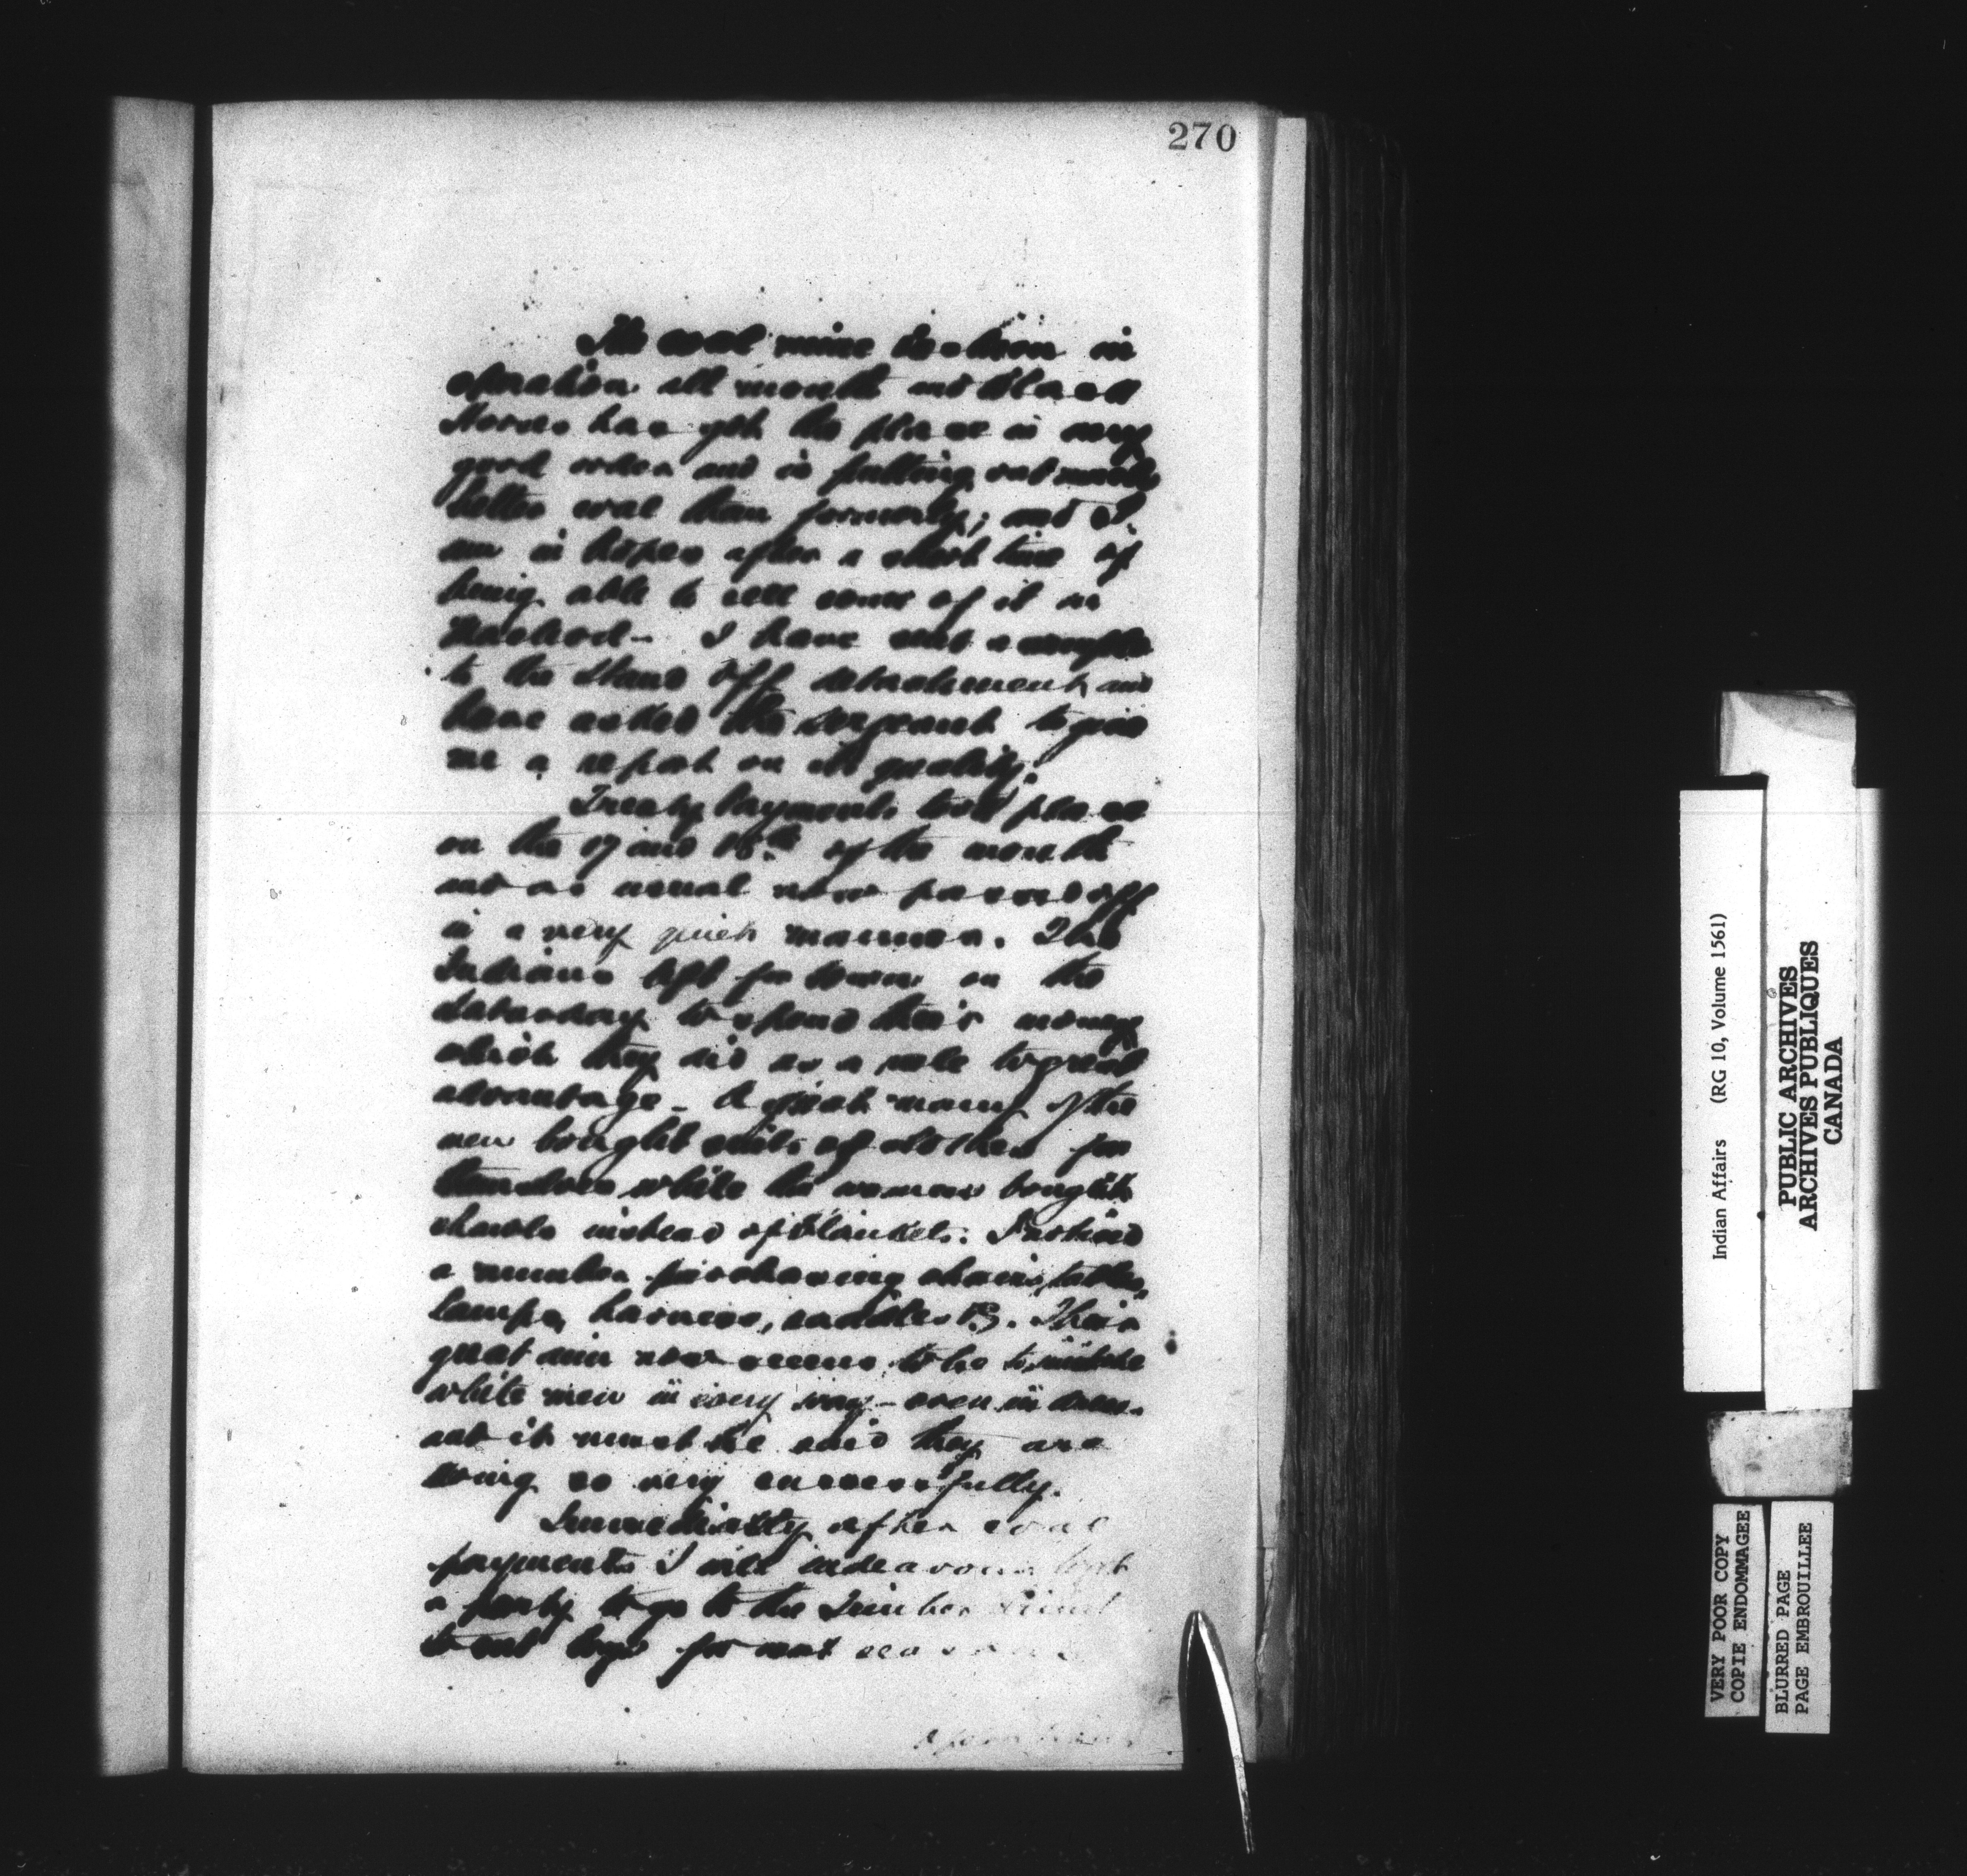 270
The coal mine has been in
operation all month and Black
Horse has got the place in very
good order and is putting out much
better coal than formerly; and I
am in hopes after a short time of
being able to sell some of it in
Macleod - I have sent a sample
to the Stand Off detachment and
have asked the sergeant to give
me a report on its quality.
Treaty Payments took place
on the 17 and 18th of the month
and as usual now passed off
in a very quiet manner. The
Indians left for town on the
Saturday to spend their money
which they did as a rule to great
advantage - A great many of the
men bought suits of clothes for
themselves while the women bought
shawls instead of blankets. I noticed
a number purchasing chairs, tables,
lamps, harness, saddles &c. Their
great aim now seems to be to imitate
white men in every way - even in dress
and it must be said they are
doing so very successfully.
Immediately after
payments I will endeavour to get
a party to go to the Timber limit
to cut logs for
Indian Affairs (RG 10, Volume 1561)
PUBLIC ARCHIVES
ARCHIVES PUBLIQUES
CANADA
VERY POOR COPY
COPIE ENDOMMAGEE
BLURRED PAGE
PAGE EMBROUILLEE